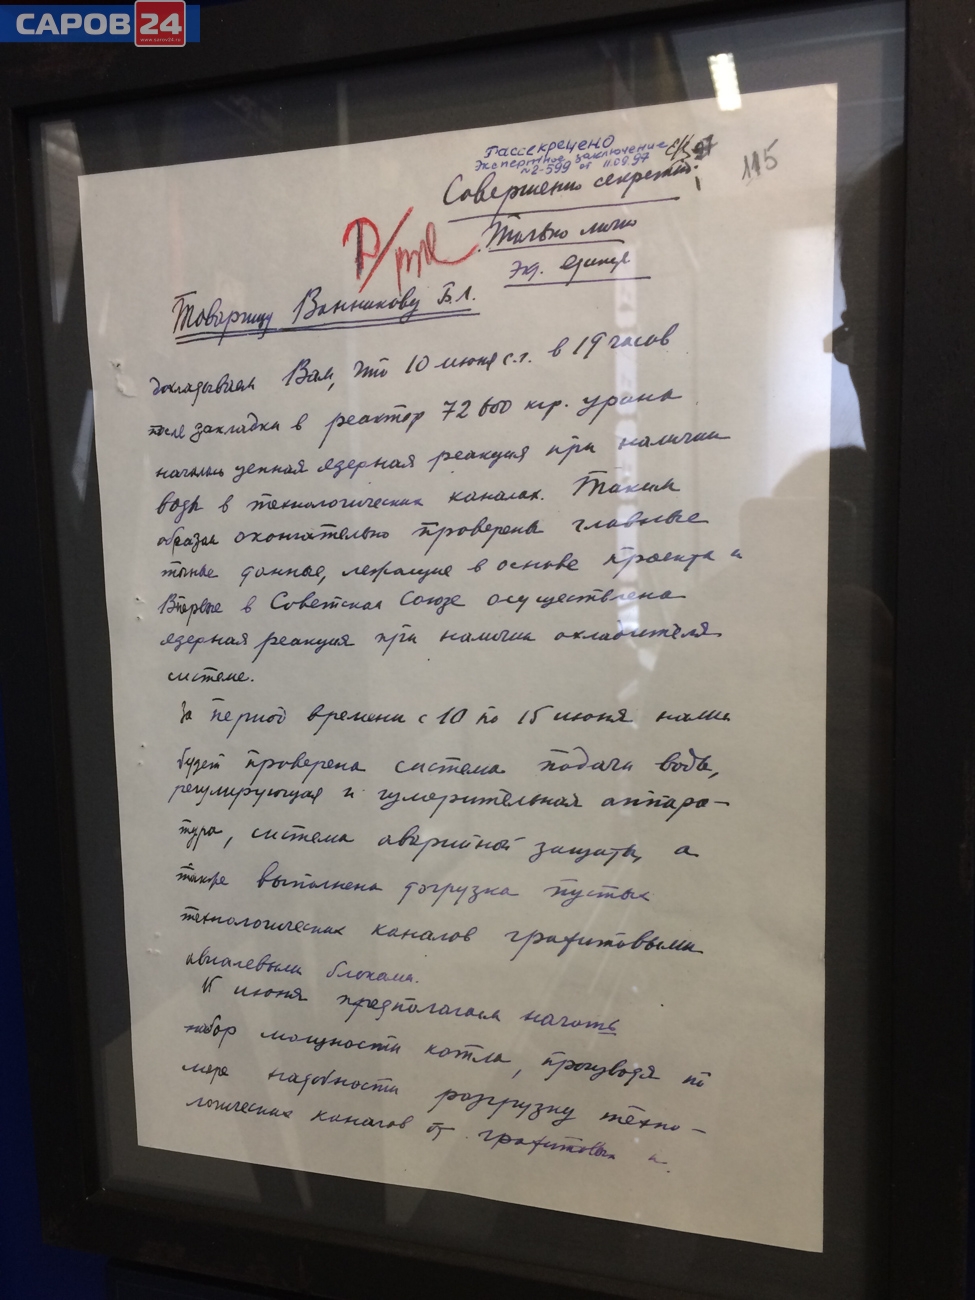 САРОВ 24
www.sarov24.ru
Рассекречено
Экспертное заключение
№2-599 от 11.09.97
115
Совершенно секретно
Только лично
Экз. единств.
Товарищу Ванникову Б.Л.
Докладываем Вам, что 10 июня с.г. в 19 часов
после закладки в реактор 72600 кгр. урана
началась цепная ядерная реакция при наличии
воды в технологических каналах. Таким
образом окончательно проверены главные
данные, лежащие в основе проекта и
Впервые в Советском Союзе осуществлена
ядерная реакция при наличии охладителя
системе.
За период времени с 10 по 15 июня нами
будет проверена система подачи воды,
регулирующая и измерительная аппара-
тура, система аварийной защиты, а
также выполнена догрузка пустых
технологических каналов графитовыми
авиалевыми блоками.
июня предполагаем начать
набор мощности котла, производя по
мере надобности разгрузку техно-
логических каналов от графитовых и